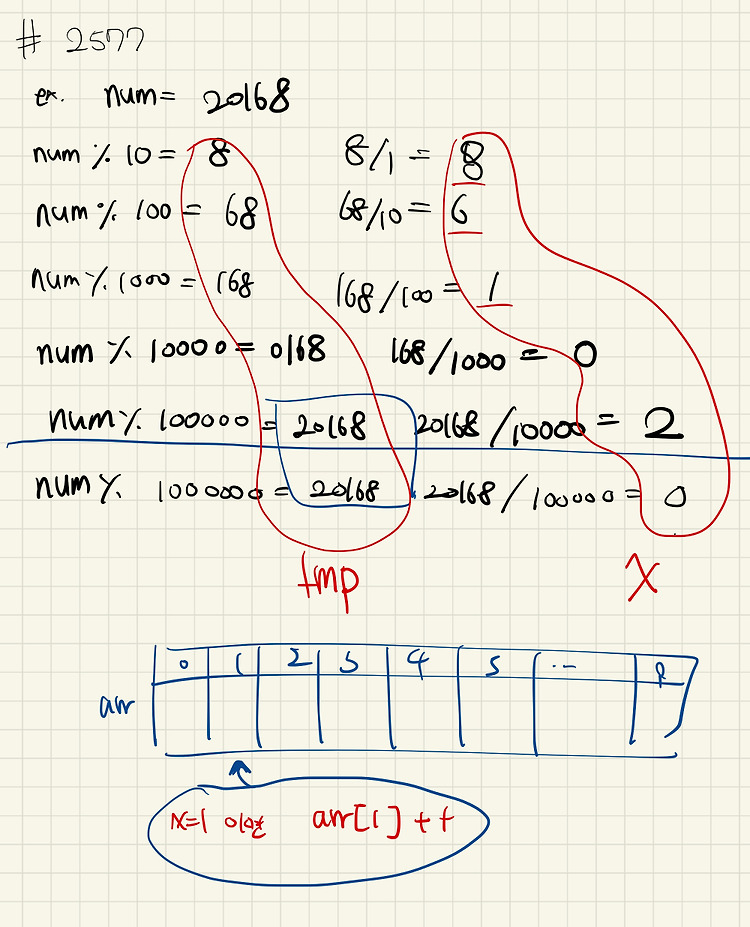 # 2577
ex. num = 20168
num % 10 = 8 8/1 = 8
num % 100 = 68 68/10 = 6
num % 1000 = 168 168/100 = 1
num % 10000 = 0168 168/1000 = 0
num % 100000 = 20168 20168/10000 = 2
num % 1000000 = 20168 20168/100000 = 0
tmp x
0 1 2 3 4 5 ...
arr
x=1 이면 arr[1] ++